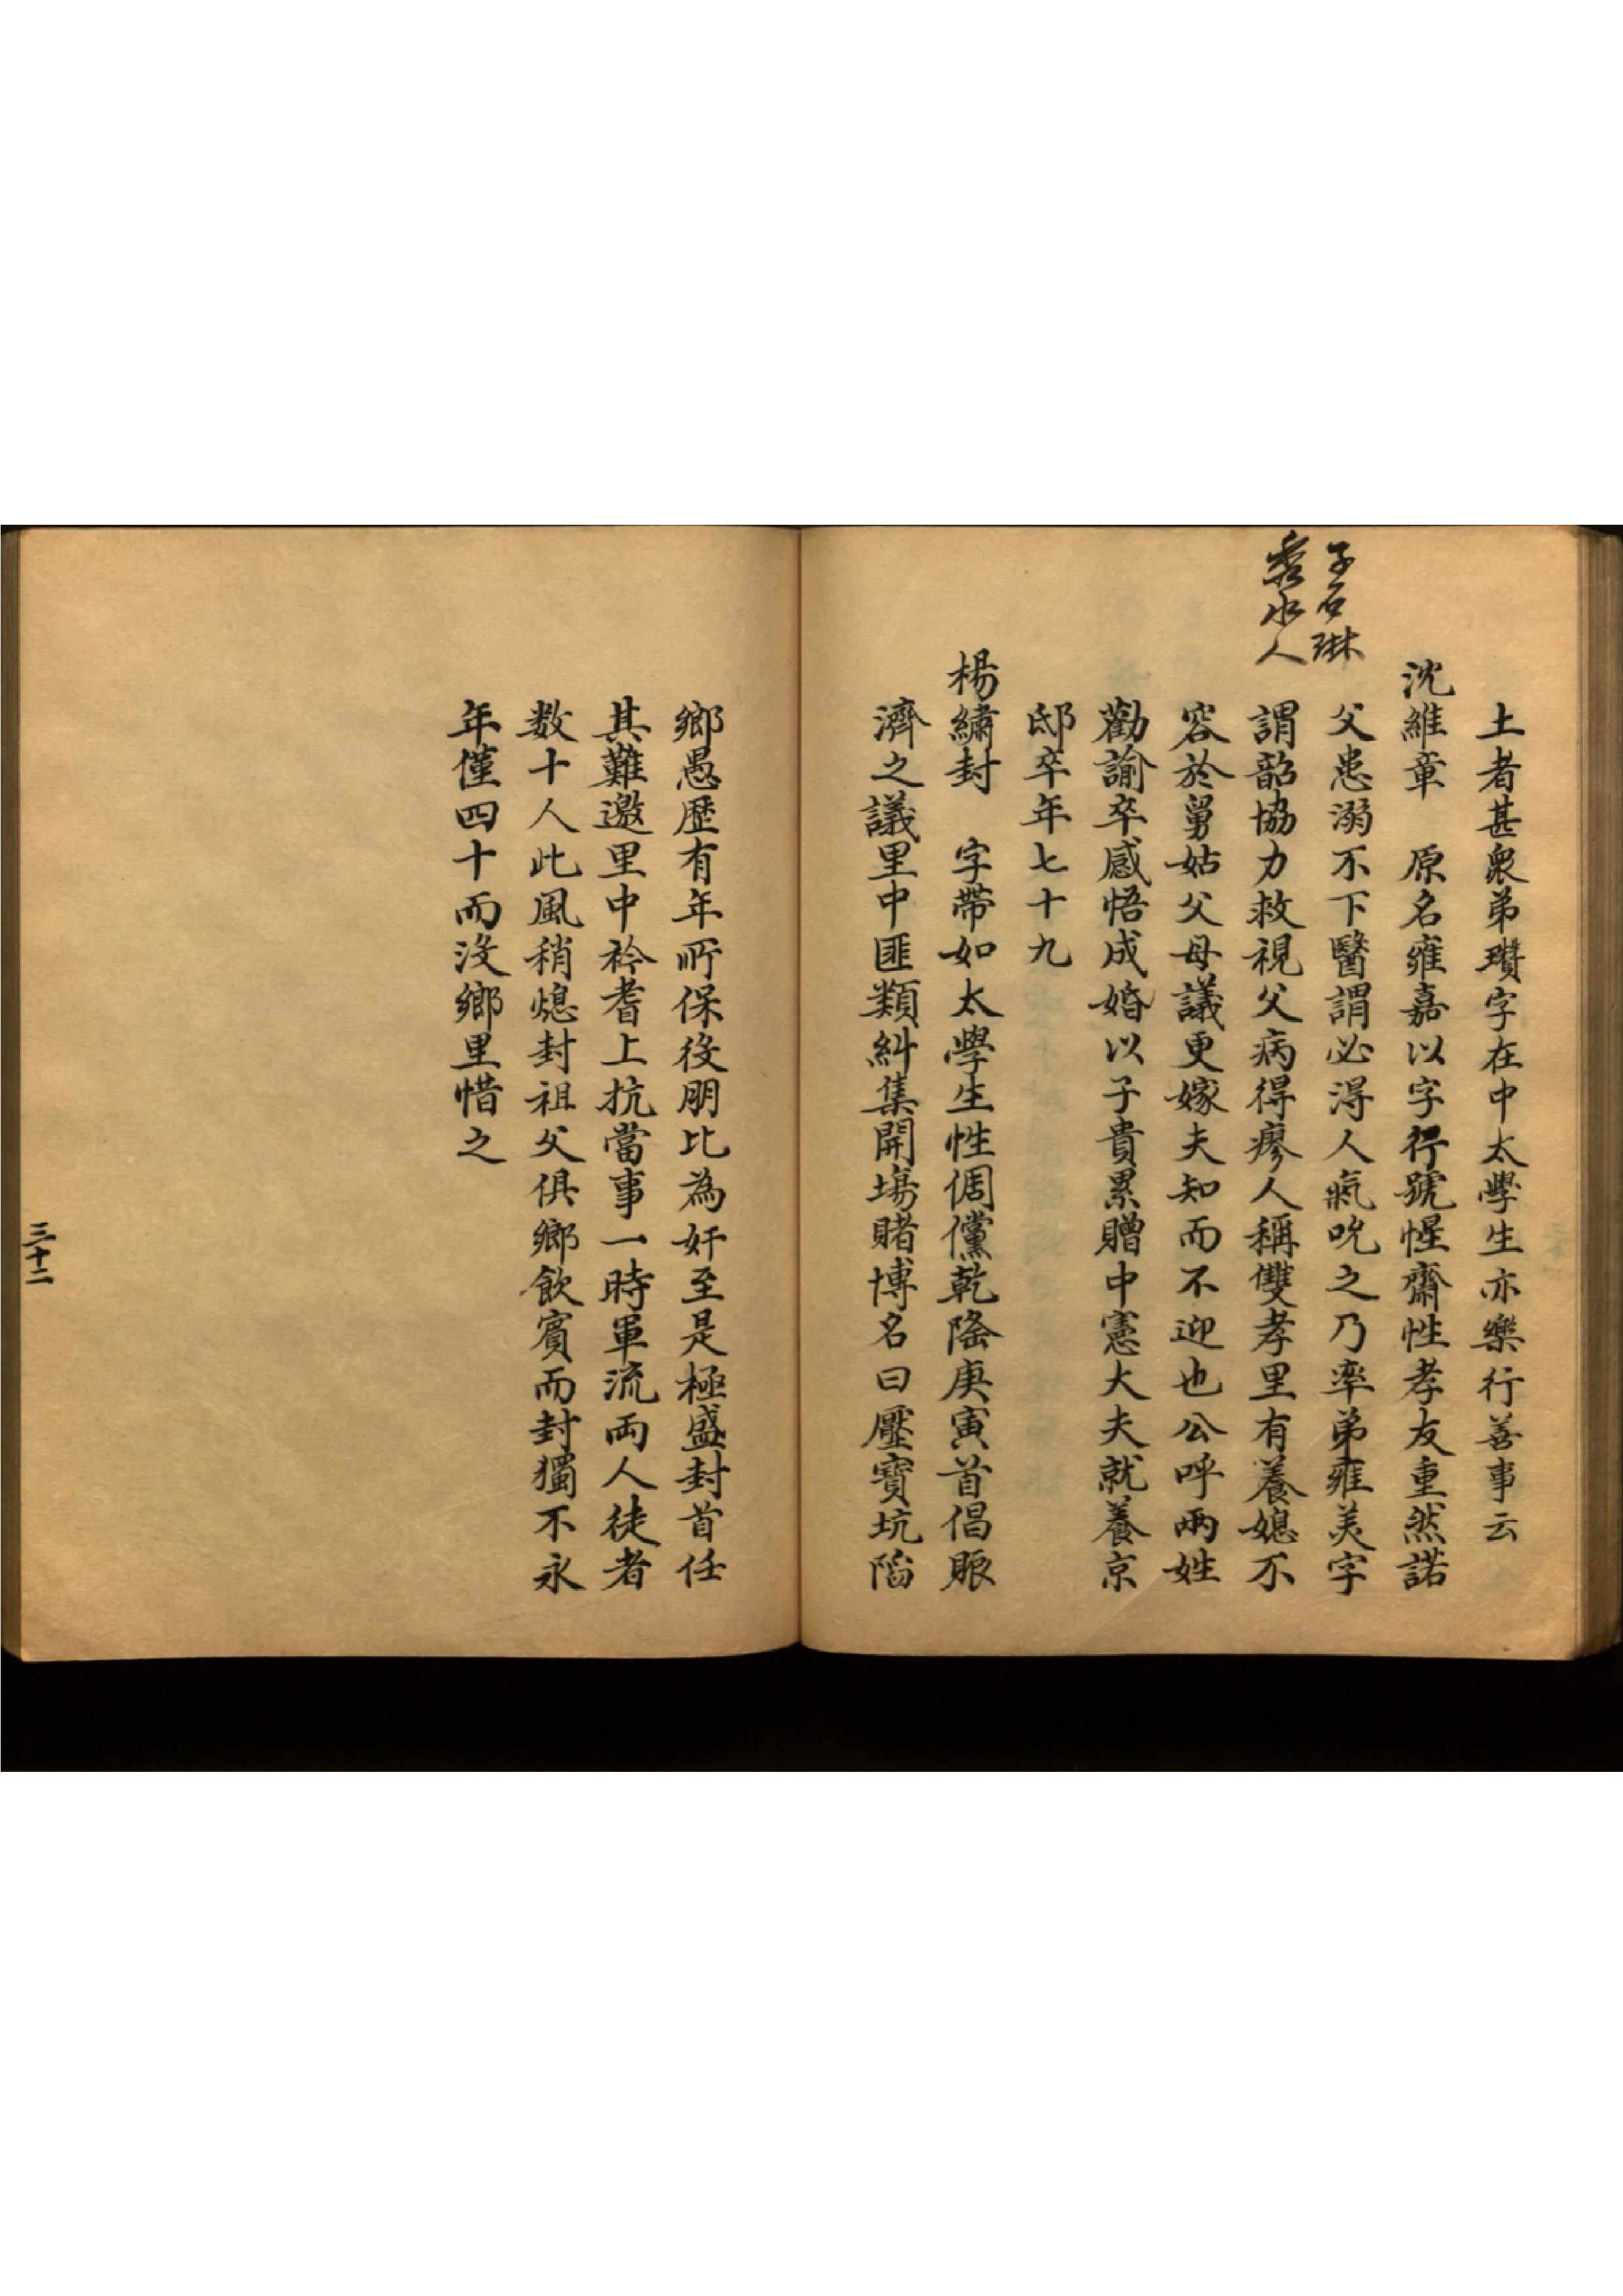 土者甚衆弟瓚字在中太學生亦樂行善事云
沈維章　原名雍嘉以字行號惺齋性孝友重然諾
子石琳
秀水人
父患溺不下醫謂必得人氣吮之乃率弟雍美字
謂韶協力救視父病得瘳人稱雙孝里有養媳不
容於舅姑父母議更嫁夫知而不迎也公呼兩姓
勸諭卒感悟成婚以子貴累贈中憲大夫就養京
邸卒年七十九
楊繡封　字帶如太學生性倜儻乾隆庚寅首倡賑
濟之議里中匪類糾集開場賭博名曰壓寶坑陷
鄉愚歷有年所保役朋比為奸至是極盛封首任
其難邀里中衿耆上抗當事一時軍流両人徒者
数十人此風稍熄封祖父俱鄉飲賓而封獨不永
年僅四十而沒鄉里惜之
三十二